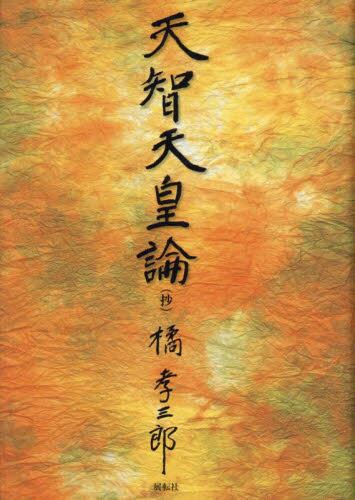 天智天皇論
（抄）
橘孝三郎
展転社